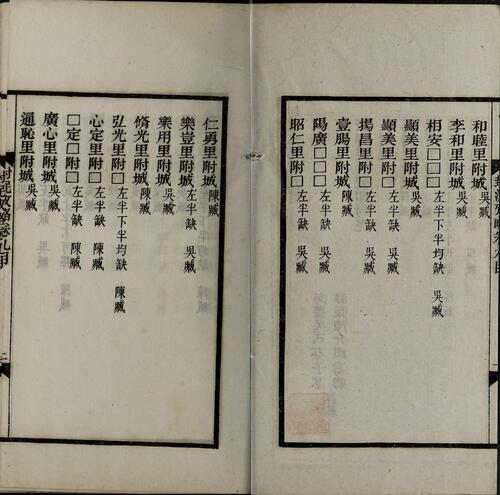 和睦里附城 吳臧
李和里附城 吳臧
相安□□□ 左半下半均缺 吳臧
顯美里附城 吳臧
顯美里附□ 左半缺 吳臧
揚昌里附□ 左半缺 吳臧
壹陽里附城 陳臧
陽廣□□□ 左半缺 吳臧
昭仁里附□ 左半缺 吳臧
仁勇里附城 陳臧
樂豈里附城 左半缺 吳臧
樂用里附城 陳臧
脩光里附城 陳臧
弘光里附□ 左半下半均缺 陳臧
心定里附□ 左半缺 陳臧
□定□附□ 左半缺 陳臧
廣心里附城 吳臧
通恥里附城 吳臧
封泥攷略卷九目 二